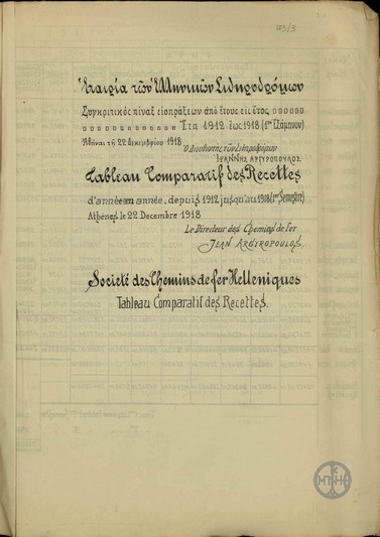 173/3
Ἑταιρία τῶν Ἑλληνικῶν Σιδηροδρόμων
Συγκριτικὸς πίναξ εἰσπράξεων ἀπὸ ἔτους εἰς ἔτος
Ἔτη 1912 ἕως 1918 (1ης Ἑξάμηνου)
Ἀθῆναι τῇ 22 Δεκεμβρίου 1918
Ὁ Διευθυντὴς τῶν Σιδηροδρόμων
ΙΩΑΝΝΗΣ ΑΡΓΥΡΟΠΟΥΛΟΣ
Tableau Comparatif des Recettes
d'année en année, depuis 1912 jusqu'au 1918 (1er Semestre)
Athènes le 22 Decembre 1918
Le Directeur des Chemins de fer
JEAN ARGYROPOULOS
Societé des Chemins de fer Helleniques
Tableau Comparatif des Recettes.